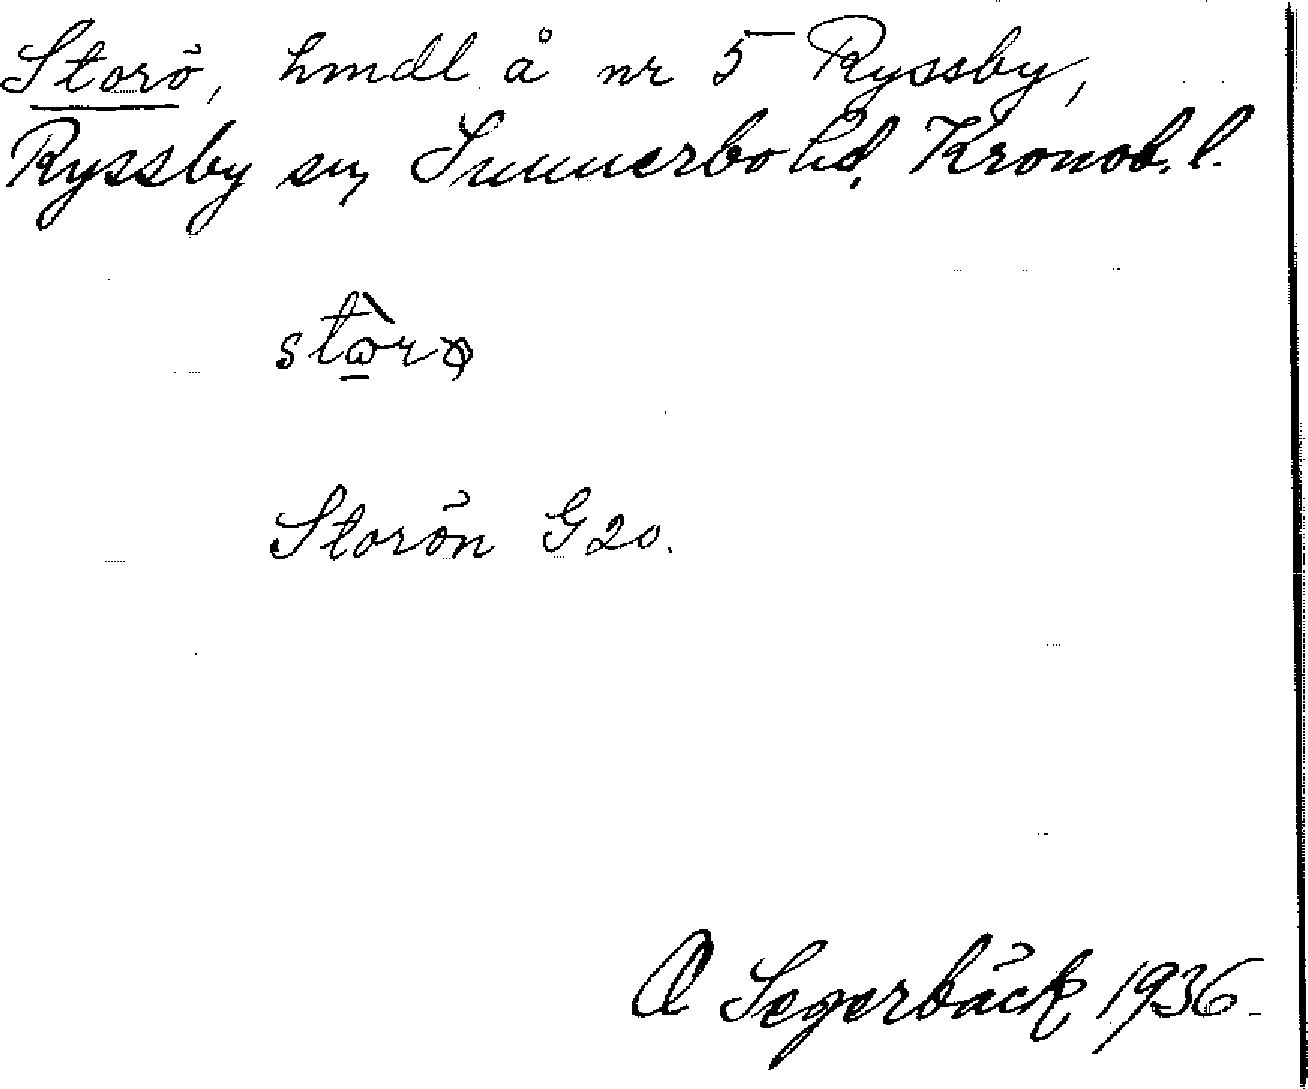 Storö, hmdl å nr 5 Ryssby,
Ryssby sn, Sunnerbo hd, Kronob. l.
Storön G 20.
Segerbäck 1936